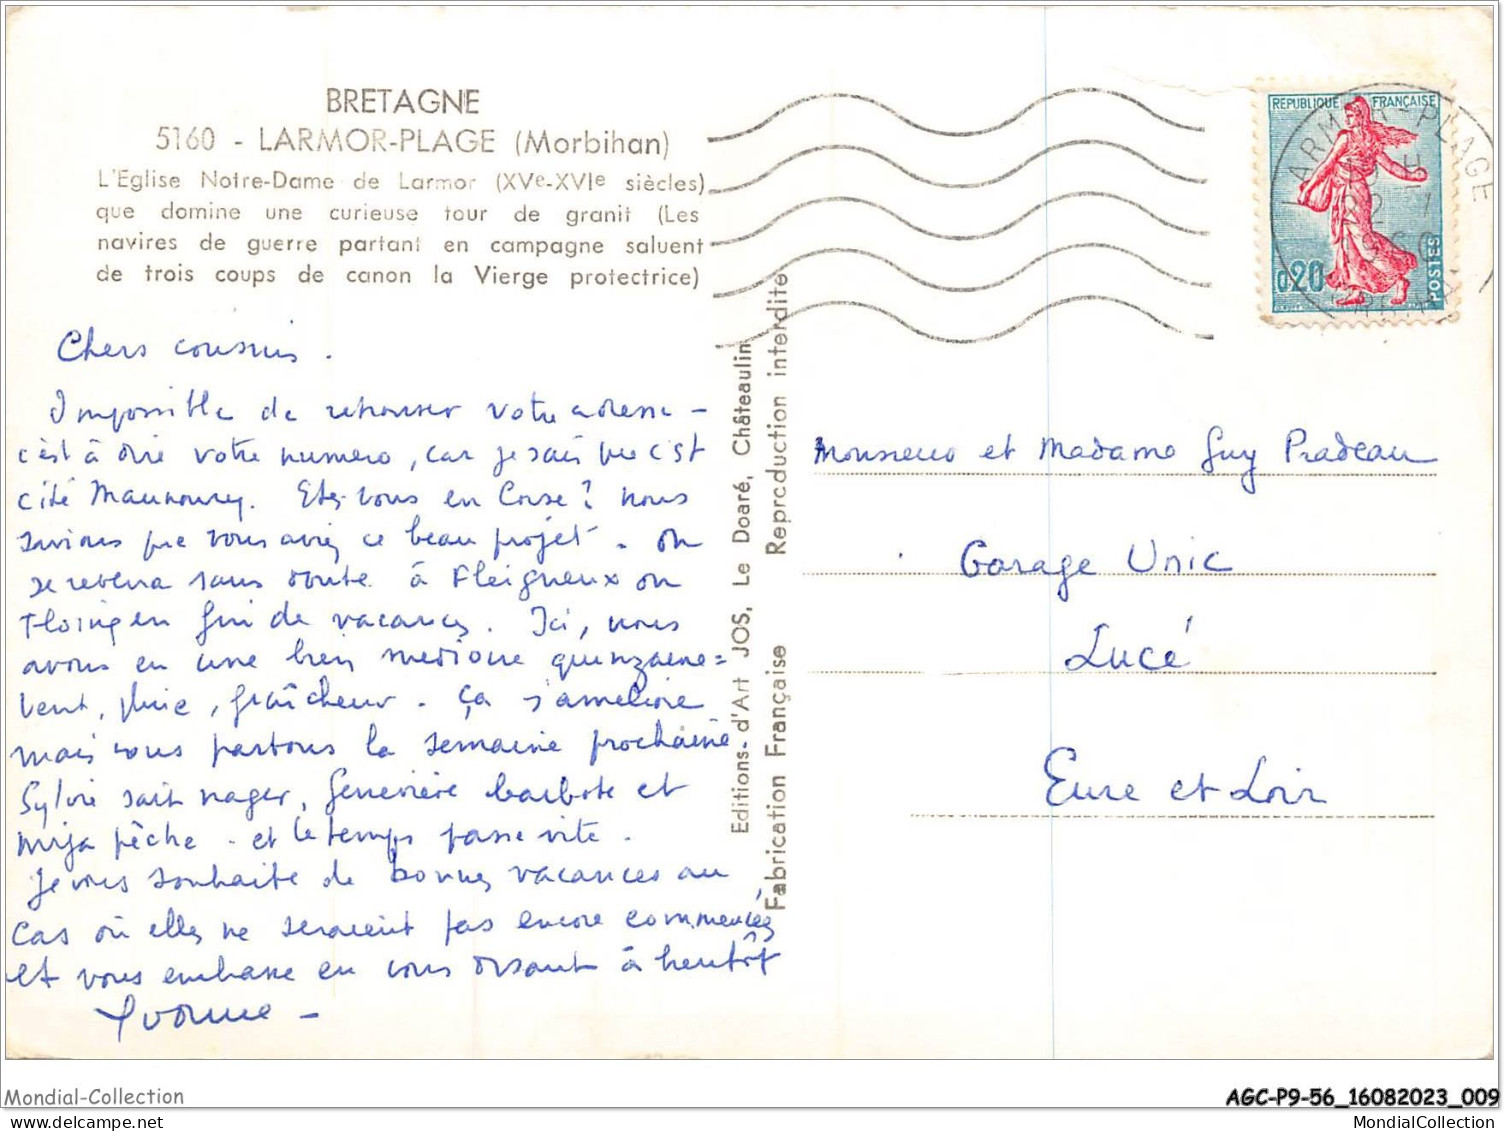 BRETAGNE
5160 - LARMOR-PLAGE (Morbihan)
L'Eglise Notre-Dame de Larmor (XVe-XVIe siècles)
que domine une curieuse tour de granit (Les
navires de guerre partant en campagne saluent
de trois coups de canon la Vierge protectrice)
Chers cousins.
Impossible de retrouver votre adresse -
c'est à dire votre numero, car je sais que c'est
cité Maunoury. Etes-vous en Corse? nous
savions que vous aviez ce beau projet. on
se reverra sans doute à Fleigneux ou
Floing en fin de vacances. Ici, nous
avons eu une bien médiocre quinzaine =
vent, pluie, fraîcheur. ça s'améliore
mais nous partons la semaine prochaine.
Sylvie sait nager, Geneviève barbote et
Mija pêche - et le temps passe vite.
Je vous souhaite de bonnes vacances au
cas où elles ne seraient pas encore commencées
et vous embrasse en vous disant à bientôt
Yvonne -
Editions d'Art JOS, Le Doaré, Châteaulin
Fabrication Française Reproduction interdite
REPUBLIQUE FRANÇAISE
0,20
POSTES
LARMOR-PLAGE
Monsieur et Madame Guy Pradeau
Garage Unic
Lucé
Eure et Loir
Mondial-Collection
AGC-P9-56_16082023_009
MondialCollection